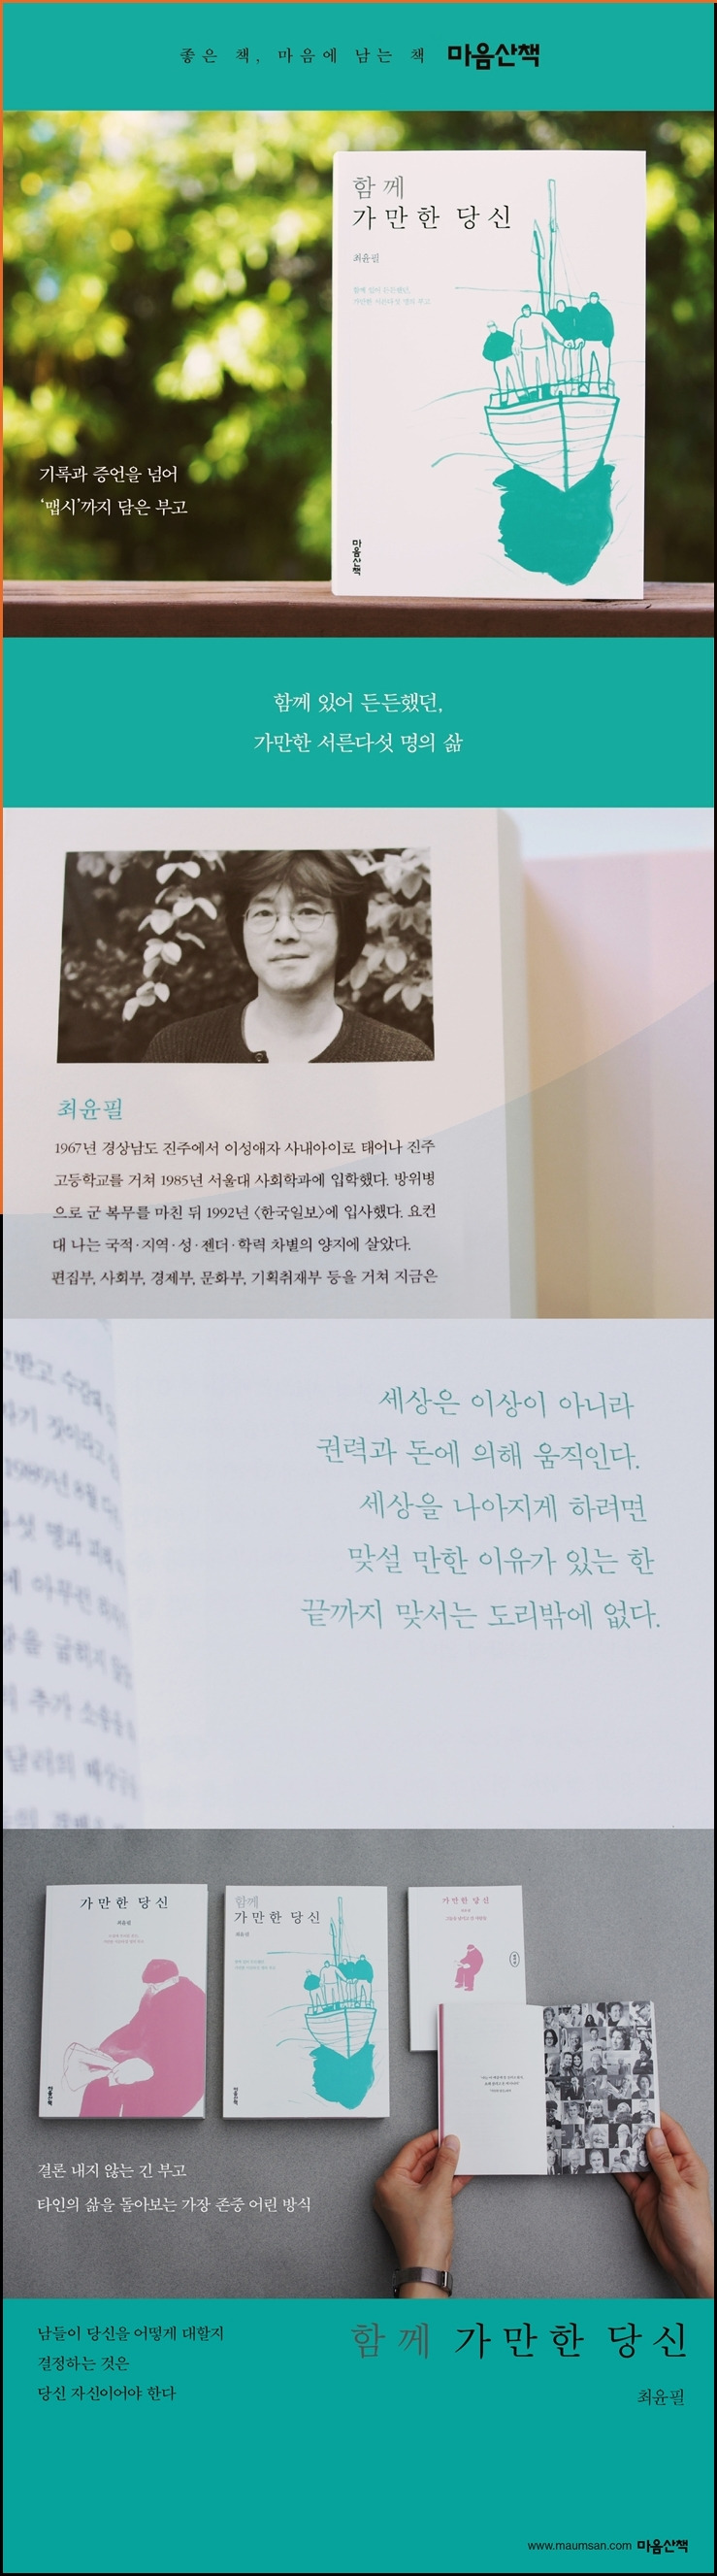 좋은 책, 마음에 남는 책 마음산책
함께
가만한 당신
최윤필
함께 있어 든든했던,
가만한 서른다섯 명의 부고
마음산책
기록과 증언을 넘어
‘맵시’까지 담은 부고
함께 있어 든든했던,
가만한 서른다섯 명의 삶
최윤필
1967년 경상남도 진주에서 이성애자 사내아이로 태어나 진주
고등학교를 거쳐 1985년 서울대 사회학과에 입학했다. 방위병
으로 군 복무를 마친 뒤 1992년 〈한국일보〉에 입사했다. 요컨
대 나는 국적·지역·성·젠더·학력 차별의 양지에 살았다.
편집부, 사회부, 경제부, 문화부, 기획취재부 등을 거쳐 지금은
세상은 이상이 아니라
권력과 돈에 의해 움직인다.
세상을 나아지게 하려면
맞설 만한 이유가 있는 한
끝까지 맞서는 도리밖에 없다.
가만한 당신
최윤필
마음산책
함께
가만한 당신
최윤필
마음산책
가만한 당신
결론 내지 않는 긴 부고
타인의 삶을 돌아보는 가장 존중 어린 방식
남들이 당신을 어떻게 대할지
결정하는 것은
당신 자신이어야 한다
함께 가만한 당신
최윤필
www.maumsan.com 마음산책